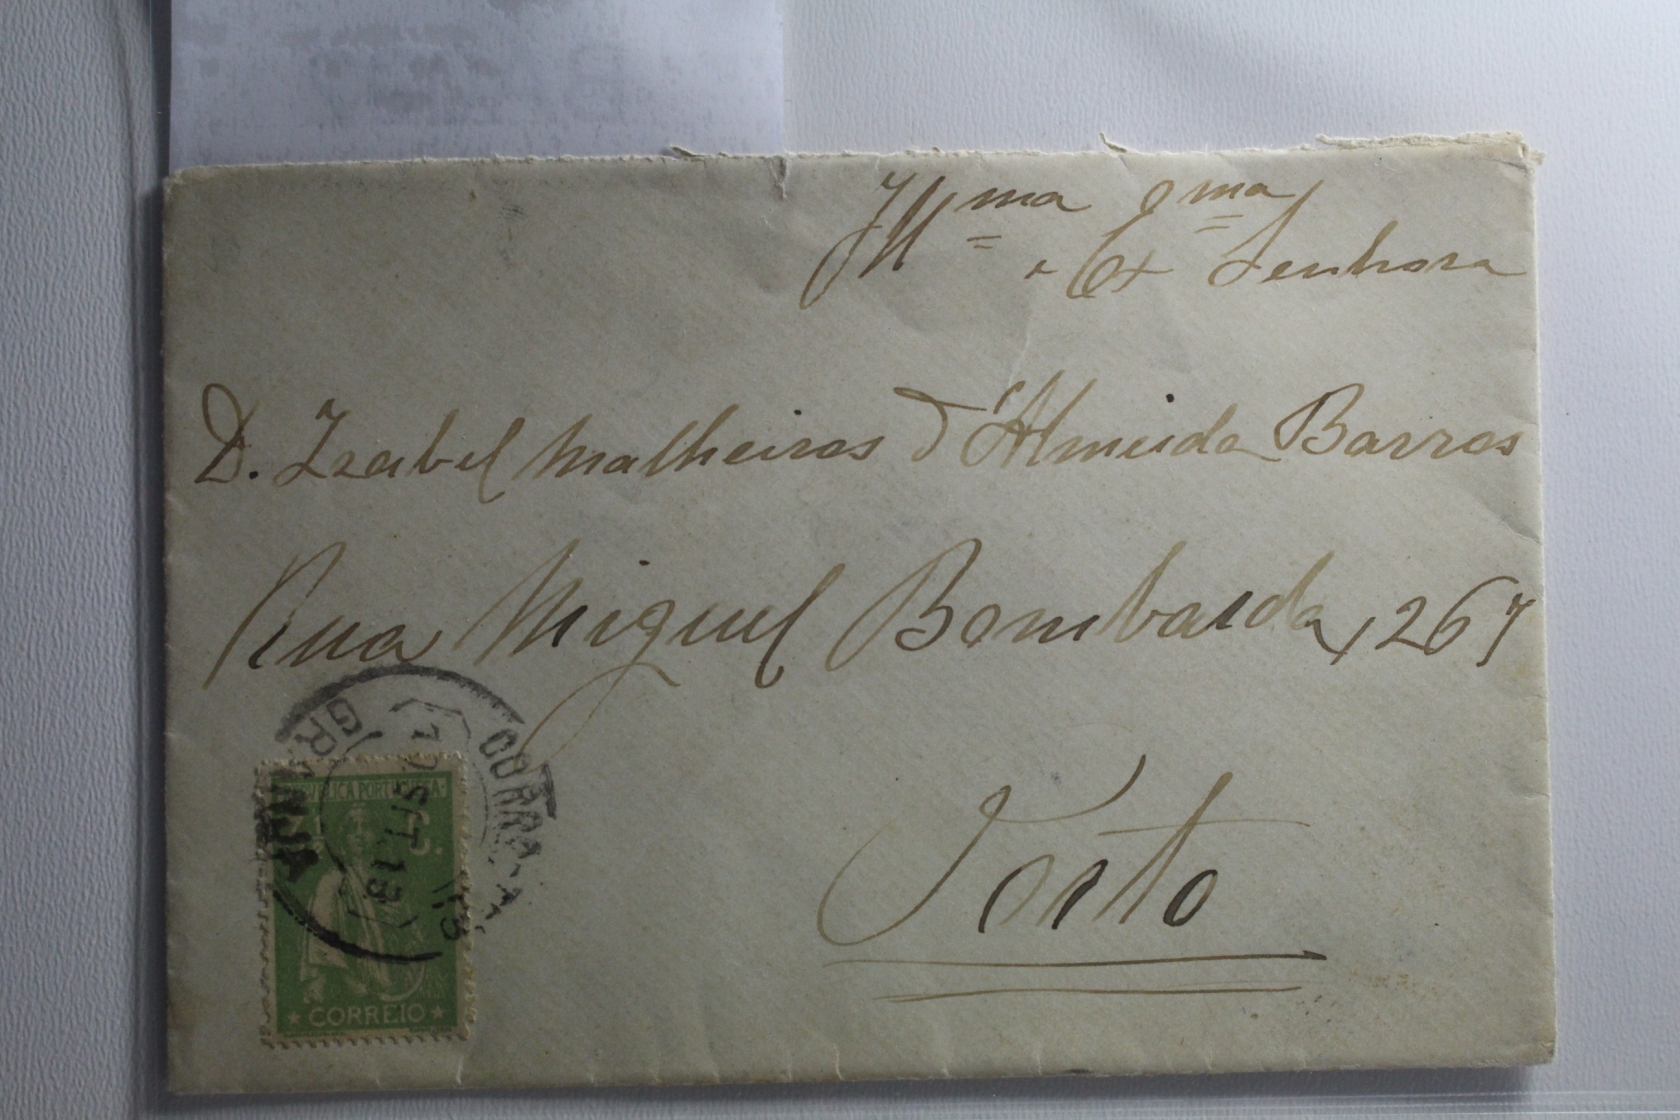 Illma e Exma Senhora
D. Izabel Malheiros d'Almeida Barros
Rua Miguel Bombarda, 267
Porto
REPUBLICA PORTUGUESA
C.
CORREIO
GRANJA
OUT 18